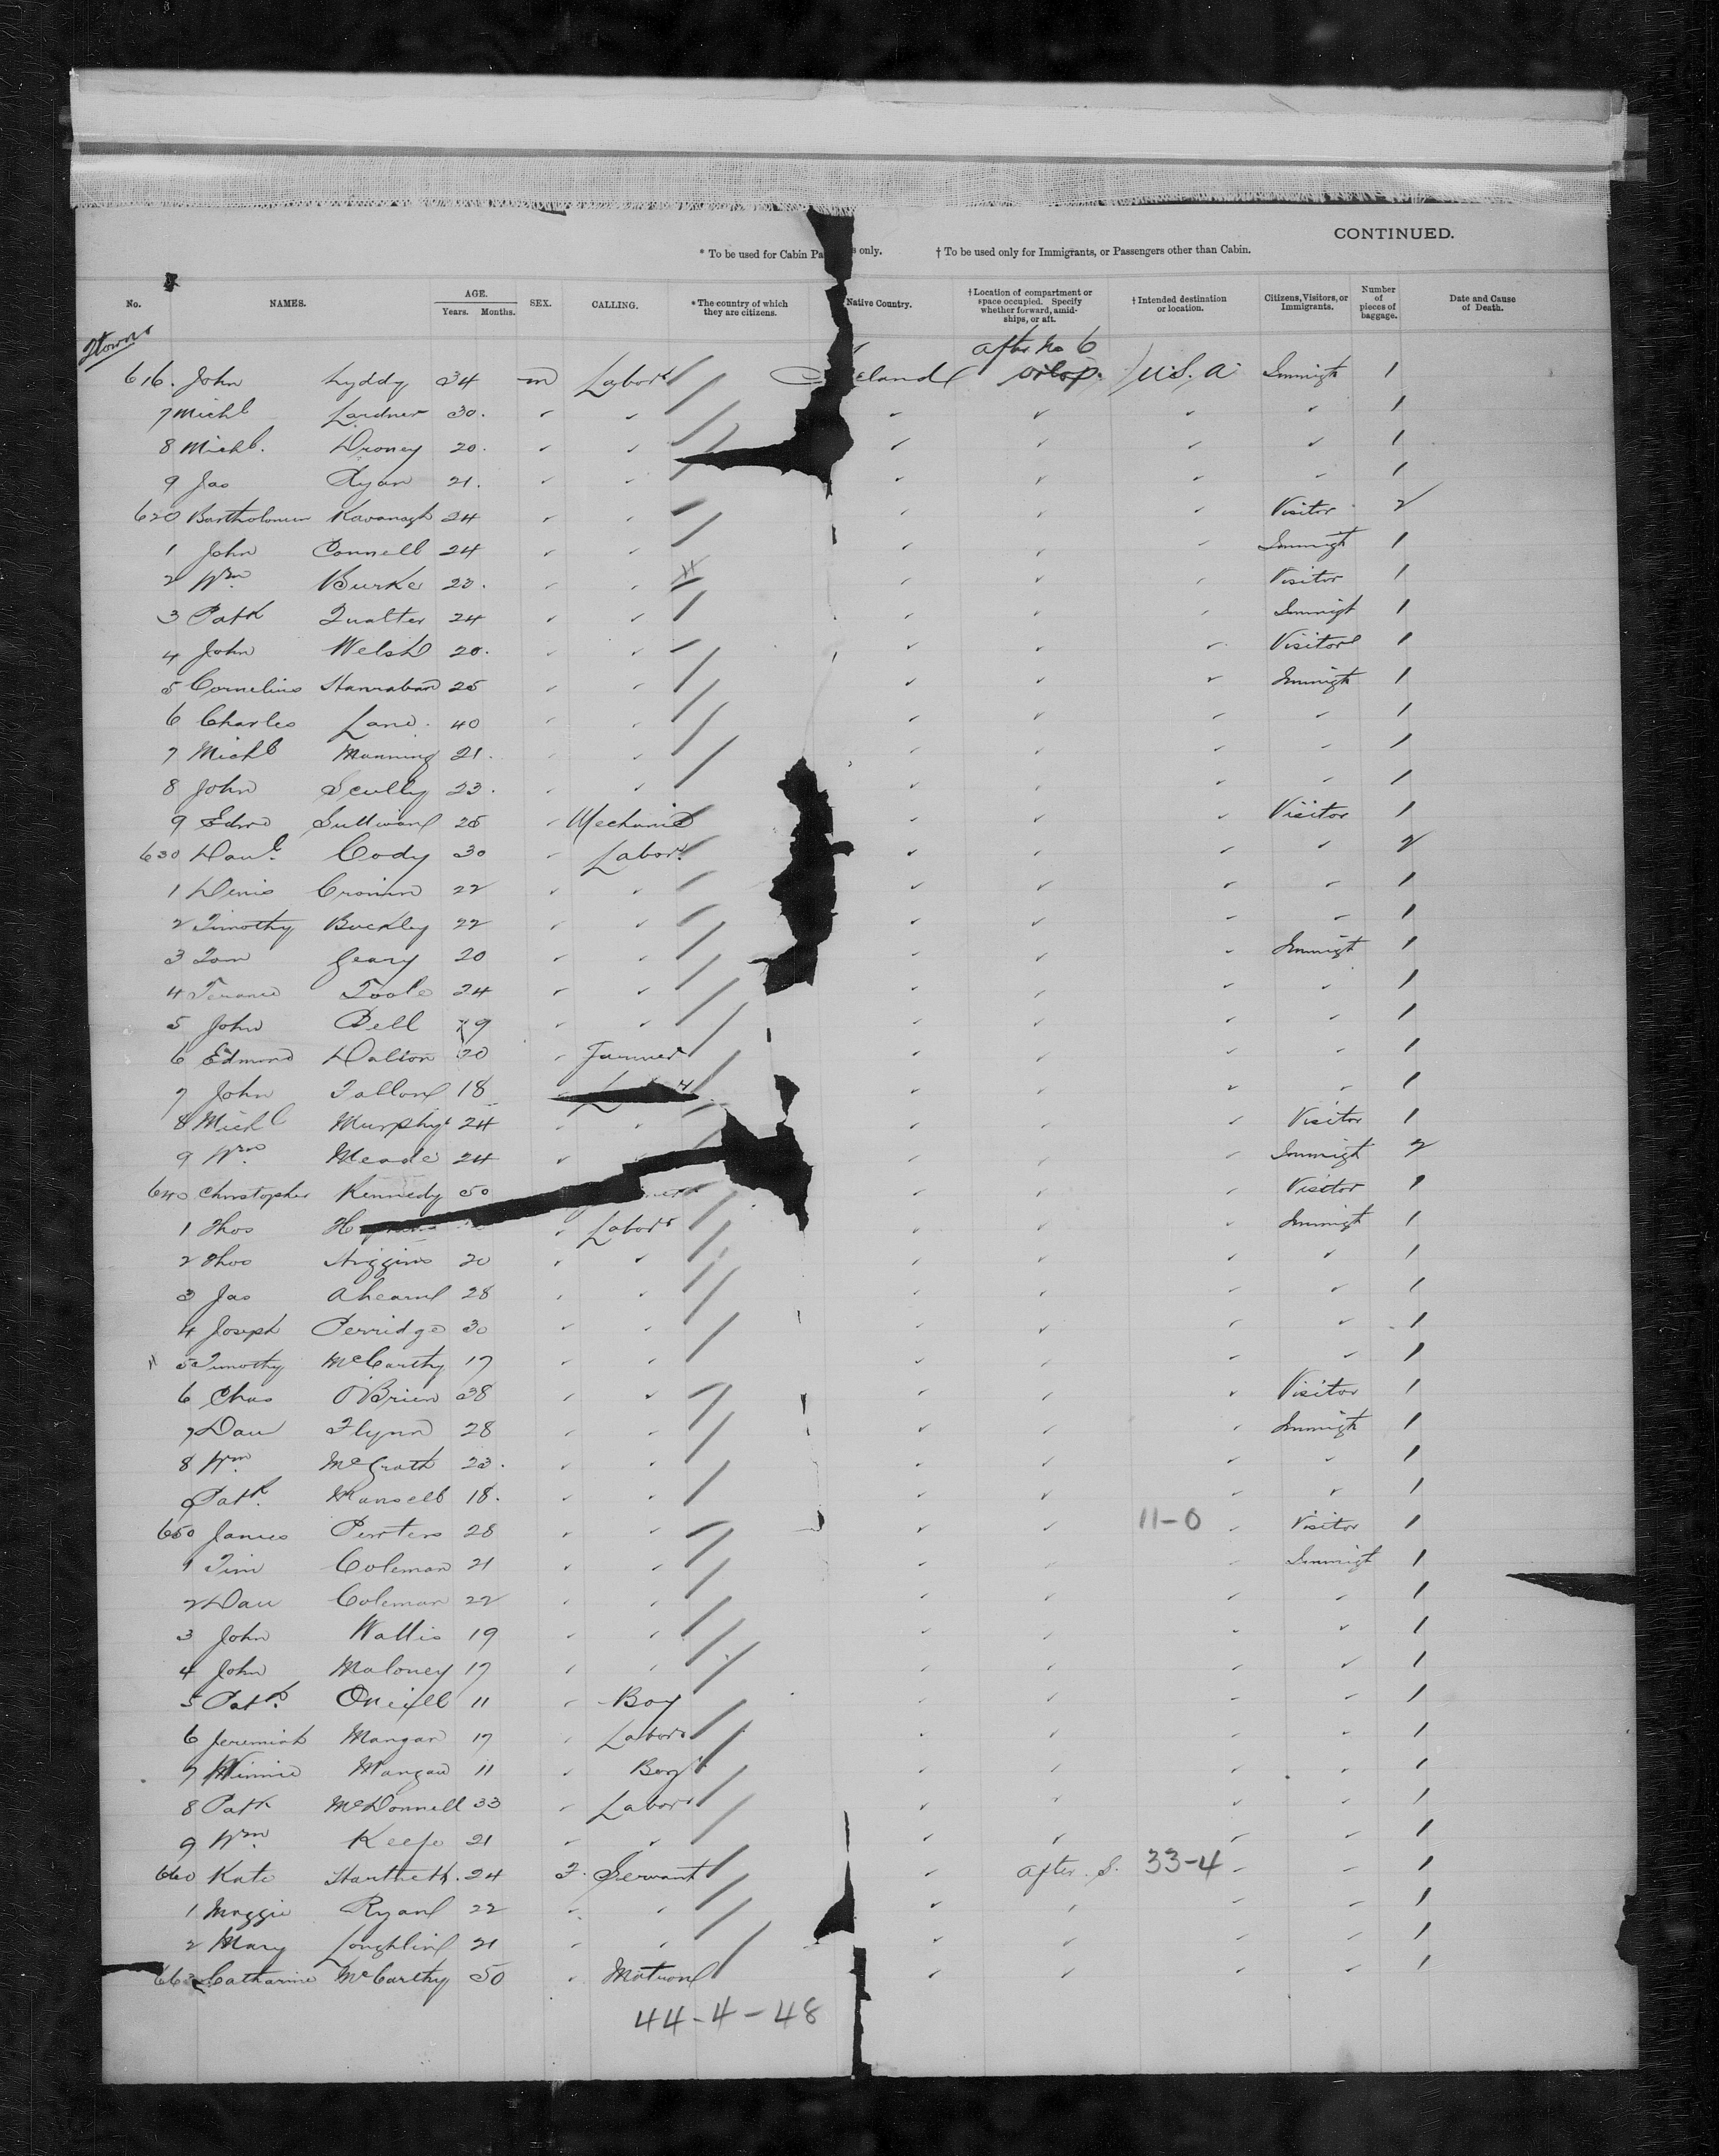 CONTINUED.
* To be used for Cabin Pa s only. † To be used only for Immigrants, or Passengers other than Cabin.
No. NAMES. AGE. Years. Months. SEX. CALLING. * The country of which they are citizens. Native Country. † Location of compartment or space occupied. Specify whether forward, amidships, or aft. † Intended destination or location. Citizens, Visitors, or Immigrants. Number of pieces of baggage. Date and Cause of Death.
Qtown
after No 6
616. John Lyddy 34 m Labor eland U.S.A Immigt 1
7 Michl Lardner 30. 1
8 Michl. Droney 20. 1
9 Jas Ryan 21. 1
620 Bartholomew Kavanagh 24 Visitor 2
1 John Connell 24 Immigt 1
2 Wm Burke 23. Visitor 1
3 Patk Qualter 24 Immigt 1
4 John Welsh 20. Visitor 1
5 Cornelius Hanrahan 25 Immigt 1
6 Charles Lane. 40 1
7 Michl Manning 21. 1
8 John Scully 23. 1
9 Edwd Sullivan 25 Mechanic Visitor 1
630 Danl. Cody 30 Labor. 2
1 Denis Cronin 22 1
2 Timothy Buckley 22 1
3 Tom Geary 20 Immigt 1
4 Terance Toole 24 1
5 John Bell 1
6 Edmond Dalton 20 Farmer 1
7 John Fallon 18 1
8 Michl Murphy 24 Visitor 1
9 Wm Meade 24 Immigt 2
640 Christopher Kennedy 50 Visitor 1
1 Thos H Labor Immigt 1
2 Thos Higgins 20 1
3 Jas Ahearn 28 1
4 Joseph Perridge 30 1
5 Timothy McCarthy 17 1
6 Chas O'Brien 38 Visitor 1
7 Dan Flynn 28 Immigt 1
8 Wm McGrath 23. 1
9 Patk. Mansell 18. 1
650 James 28 11-0 Visitor 1
1 Tim Coleman 21 Immigt 1
2 Dan Coleman 22 1
3 John Wallis 19 1
4 John Maloney 17 1
5 Patk. Oneill 11 Boy 1
6 Jeremiah Mangan 17 Labor 1
7 Winnie Mangan 11 Boy 1
8 Patk McDonnell 33 Labor 1
9 Wm Keefe 21 1
660 Kate 24 F. Servant After. S. 33-4 1
1 Maggie Ryan 22 1
2 Mary Loughlin 21 1
663 Catharine McCarthy 50 Matron 1
44-4-48